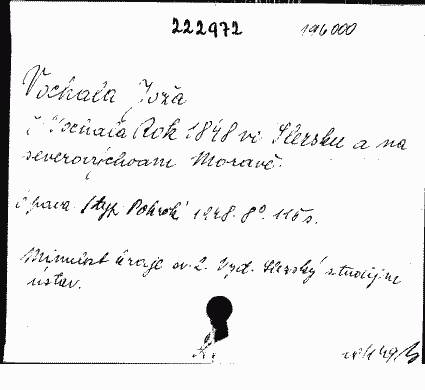 222972 196000
Vochala Joža
J. Vochala Rok 1848 ve Slezsku a na
severovýchodní Moravě.
Opava. Styp. Pokrok 1948. 8°. 115 s.
Minulost kraje sv. 2. Vyd. Slezský studijní
ústav.